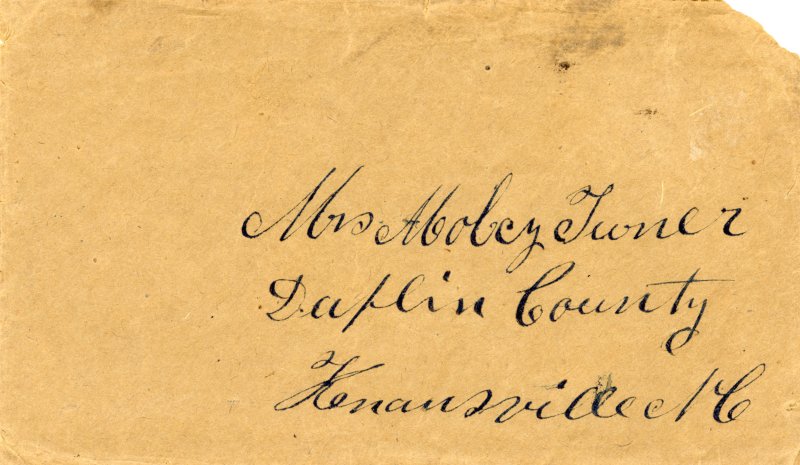 Mrs Mobey Turner
Duplin County
Kenansville NC